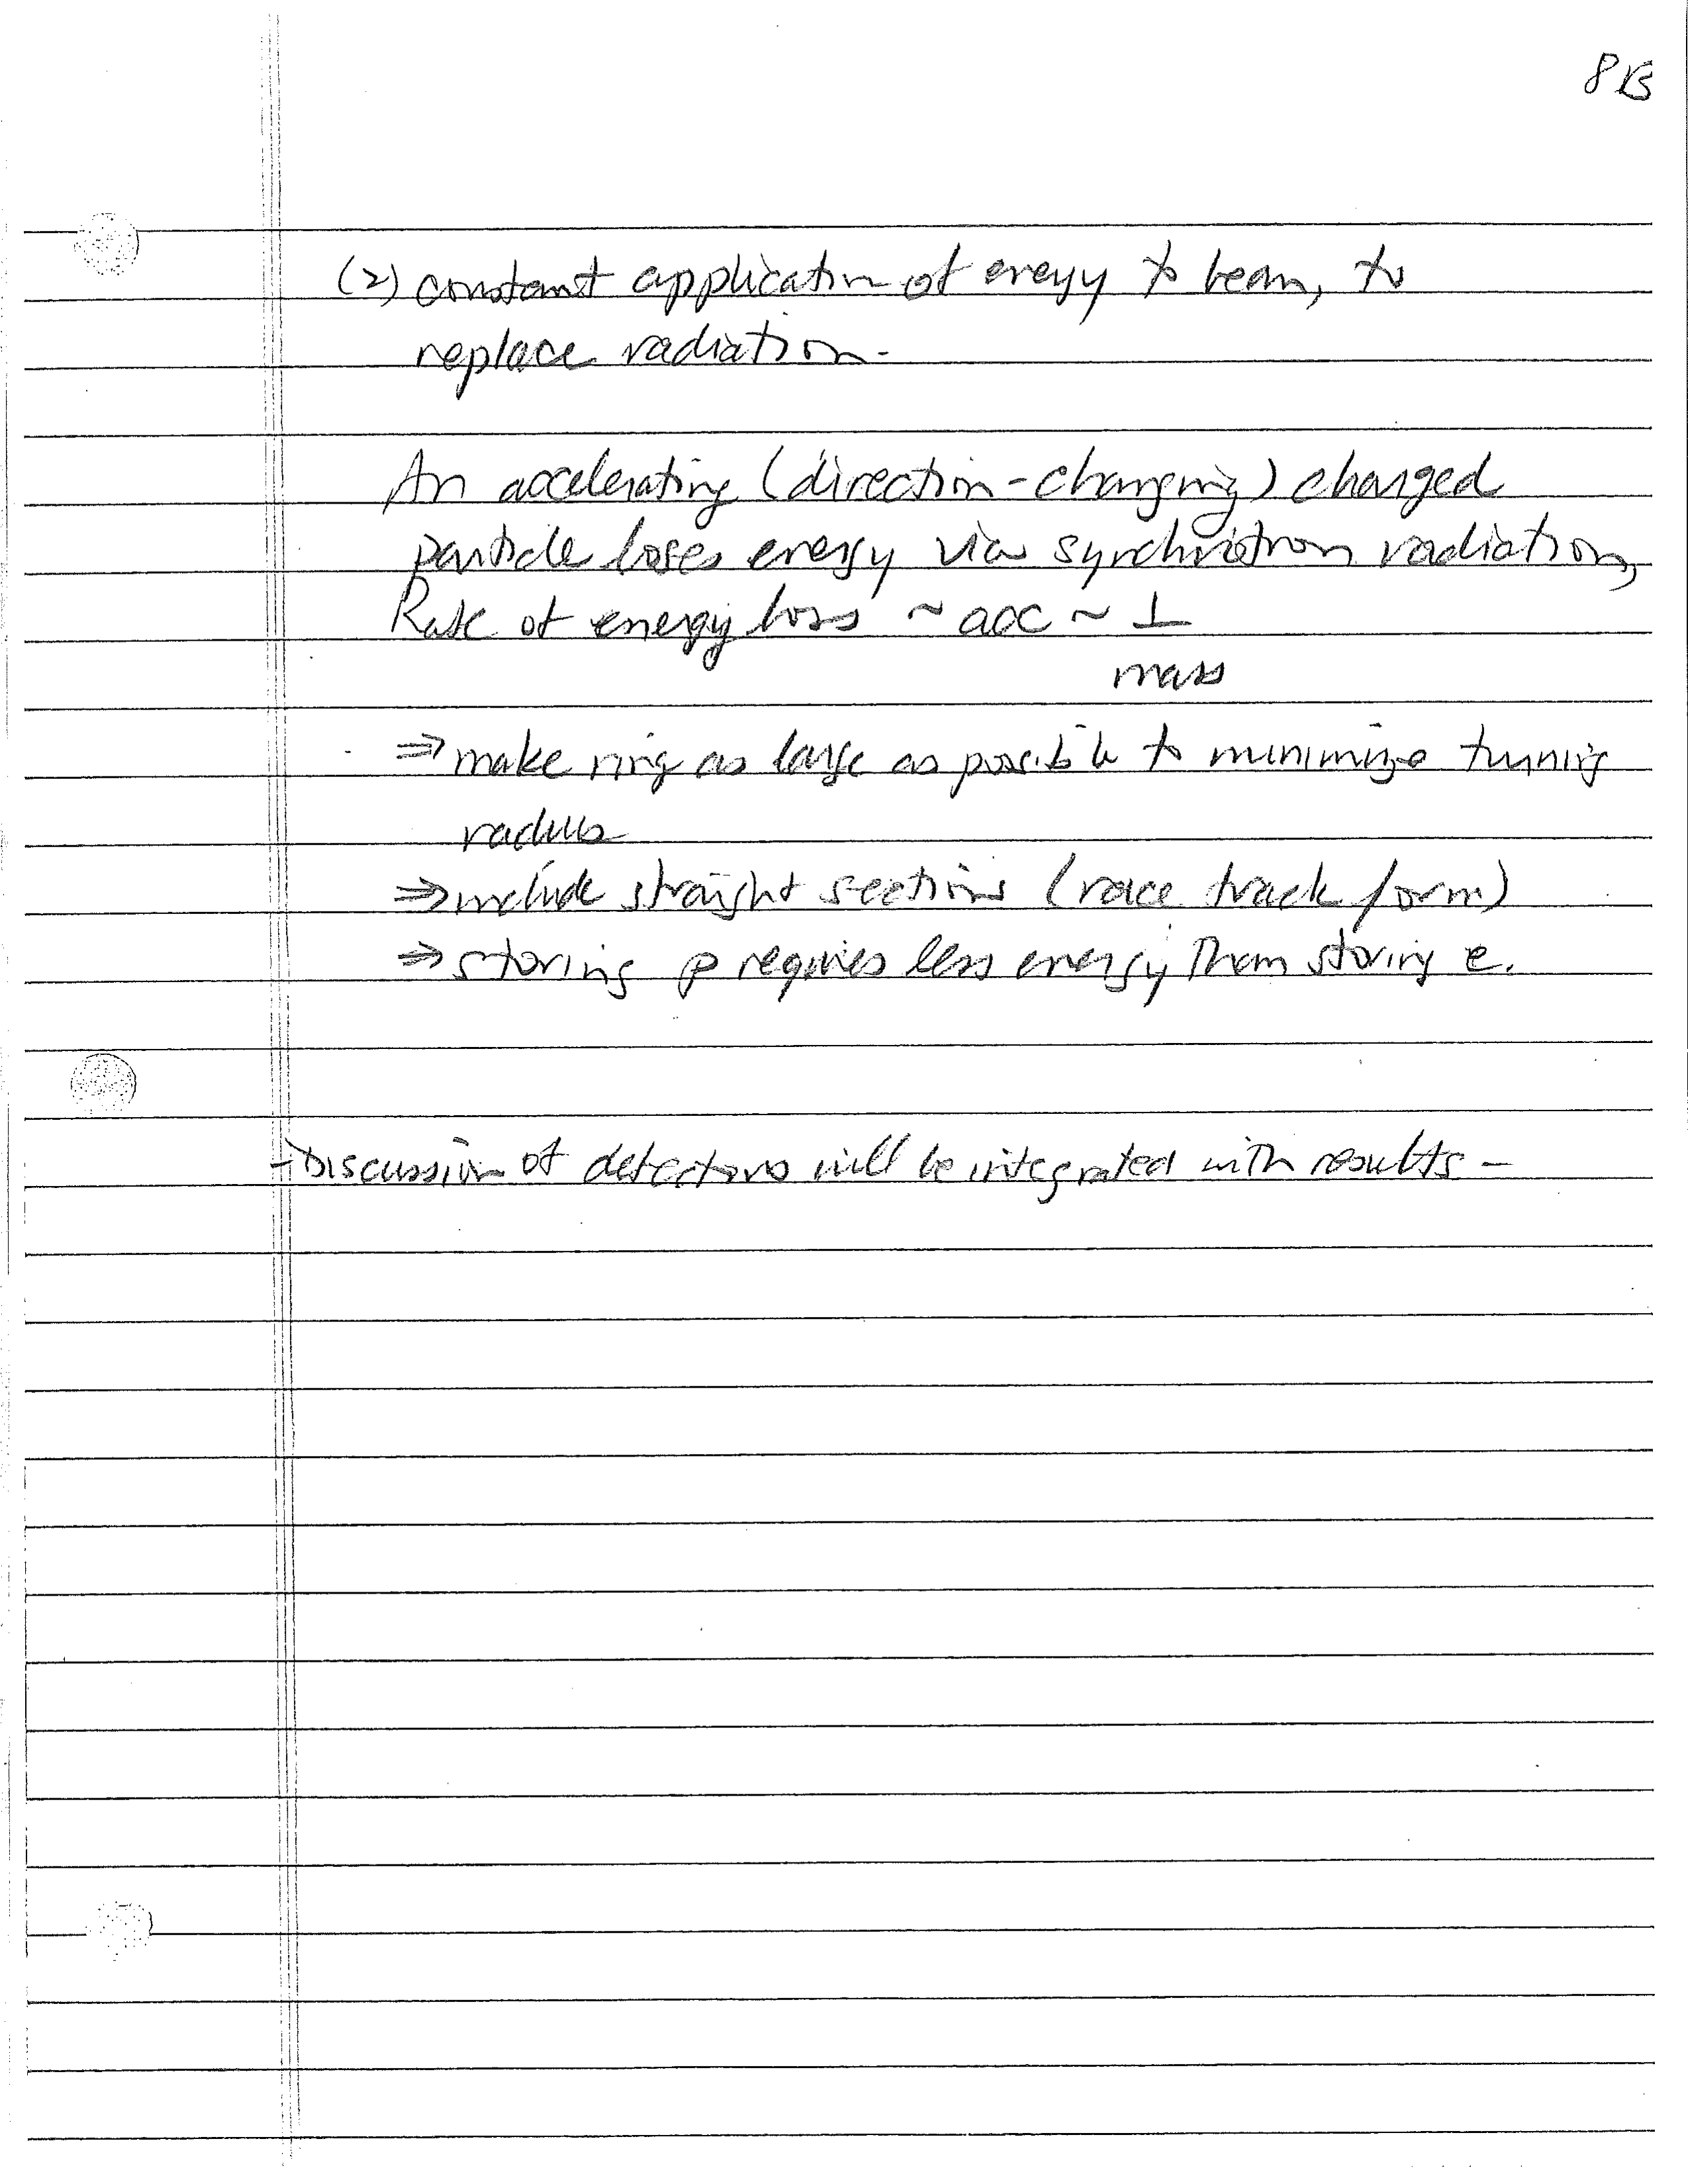 8B
(2) constant application of energy to beam, to
replace radiation.
An accelerating (direction-changing) charged
particle loses energy via synchrotron radiation,
Rate of energy loss ~ acc ~ 1
mass
⇒ make ring as large as possible to minimize turning
radius
⇒ include straight sections (race track form)
⇒ storing p requires less energy than storing e.
- Discussion of detectors will be integrated with results -